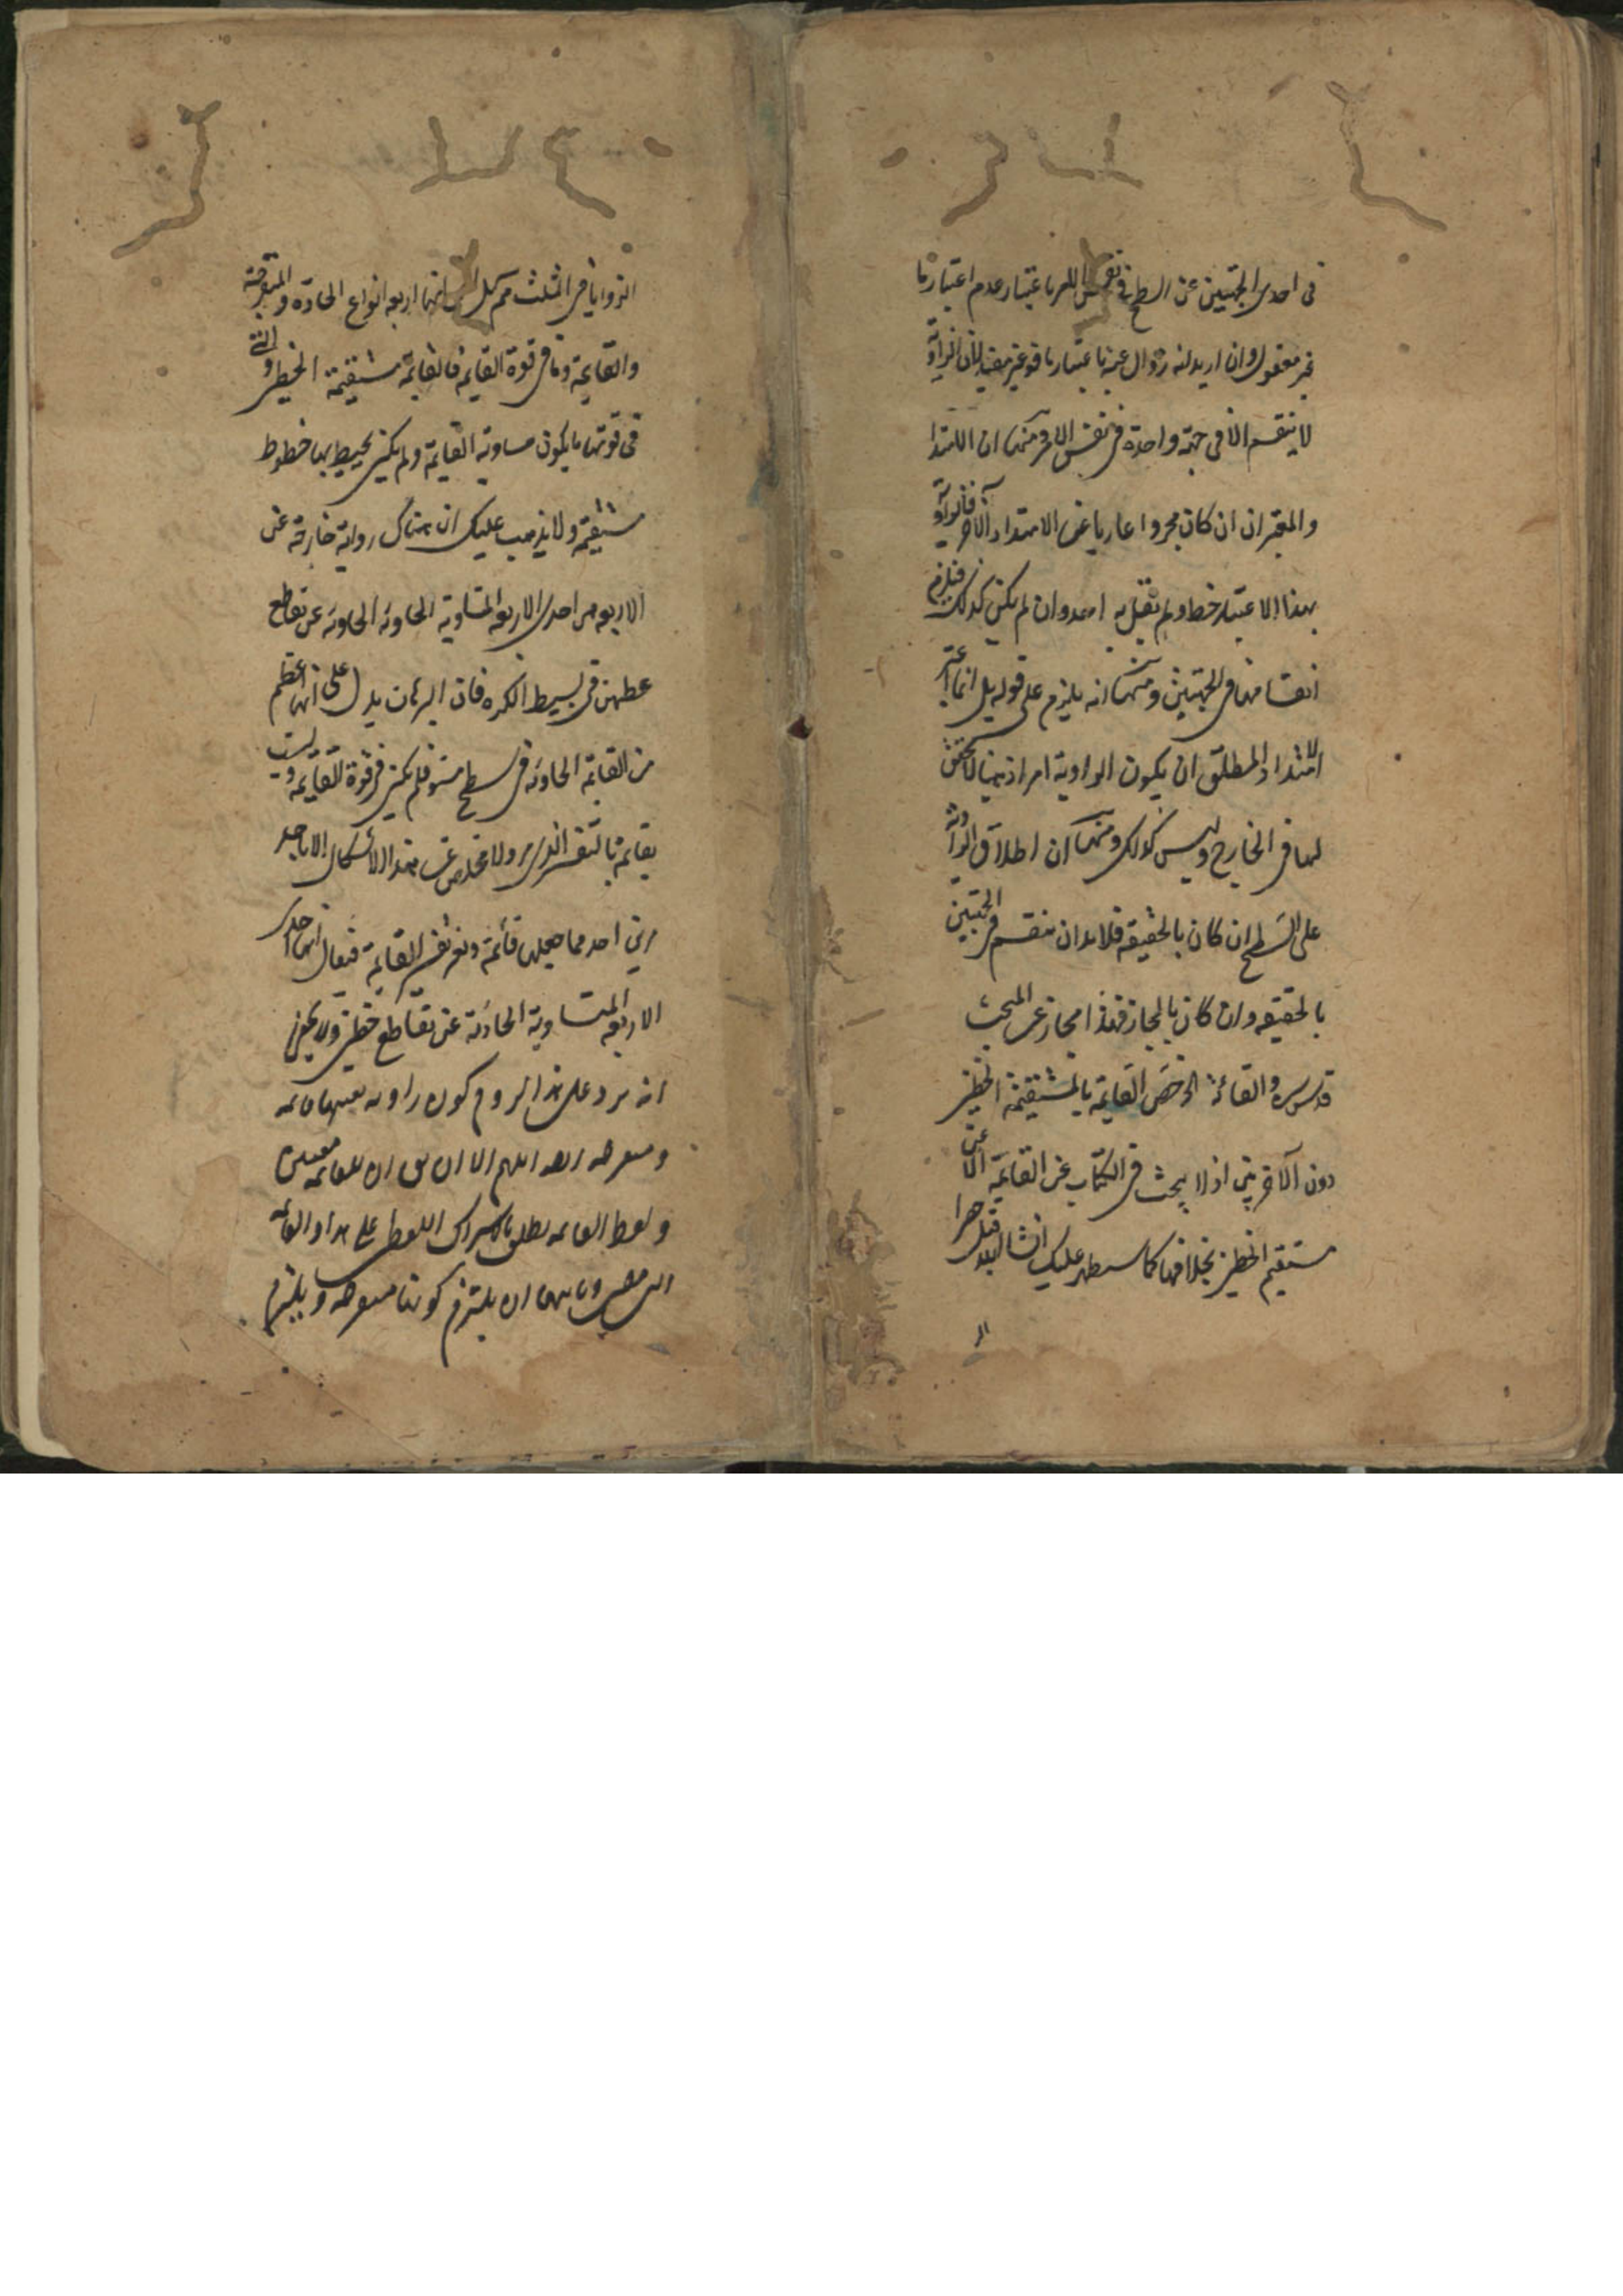 فى احدى الجهتين عن السطح فى نفس الامر باعتبار عدم اعتبارنا
غير معقول وان اريد انه زوال عينه باعتبارنا فهو غير مفيد لان الزاوية
لا ينقسم الا فى جهة واحدة فى نفس الامر ومنها ان الامتداد
والمعتبر ان كان مجردا عاريا عن الامتداد الآخر فالزاوية
بهذا الاعتبار خط ولم يقل به احد وان لم يكن كذلك فيلزم
انقسامها فى الجهتين ومنها انه يلزم على قوله بل انما اعتبر
الامتداد المطلق ان يكون الزاوية امرا ذهنيا لا تحقق
لها فى الخارج وليس كذلك ومنها ان اطلاق الزاوية
على السطح ان كان بالحقيقة فلا بد ان ينقسم فى الجهتين
بالحقيقه وان كان بالمجاز فهذا مجاز عن المبحث
قدس سره والقائمة الخ خص القايمة بالمستقيمة الخطين
دون الآخريين اذ لا يبحث فى الكتاب عن القايمة
مستقيم الخطين بخلافها كما سيظهر عليك انشا
الزوايا فى المثلث انها اربعه انواع الحادة والمنفرجة
والقايمة وما فى قوة القايمة فالقايمة مستقيمة الخطين والتى
فى قوتها ما يكون مساوية القايمة ولم يكن يحيط بها خطوط
مستقيمة ولا يذهب عليك ان هناك زواية خارجة عن
الاربعه هى احدى الاربعة المتساوية الحاوية الحادثة عن تقاطع
عظمتين فى بسيط الكره فان البرهان يدل على انها اعظم
من القايمة الحادثه فى سطح مستو فلم يكن فى قوة القايمه وليست
بقايمة بالتفسير الذى ولا مخلص عن هذا الاشكال الا باحد
امرين احدهما جعلها قائمة وتعريف القايمة فيقال انها احدى
الاربعة المتساوية الحادثة عن تقاطع خطين ولا يخفى
انه يرد على هذا لزوم كون زاوية بعينها قائمه
ومنفرجه ايضا اللهم الا ان يقال ان للقائمه معنيين
ولفظ القائمه يطلق باشتراك اللفظ على هذا والقائمه
وثانيهما ان يلتزم كونها منفرجه ويلتزم